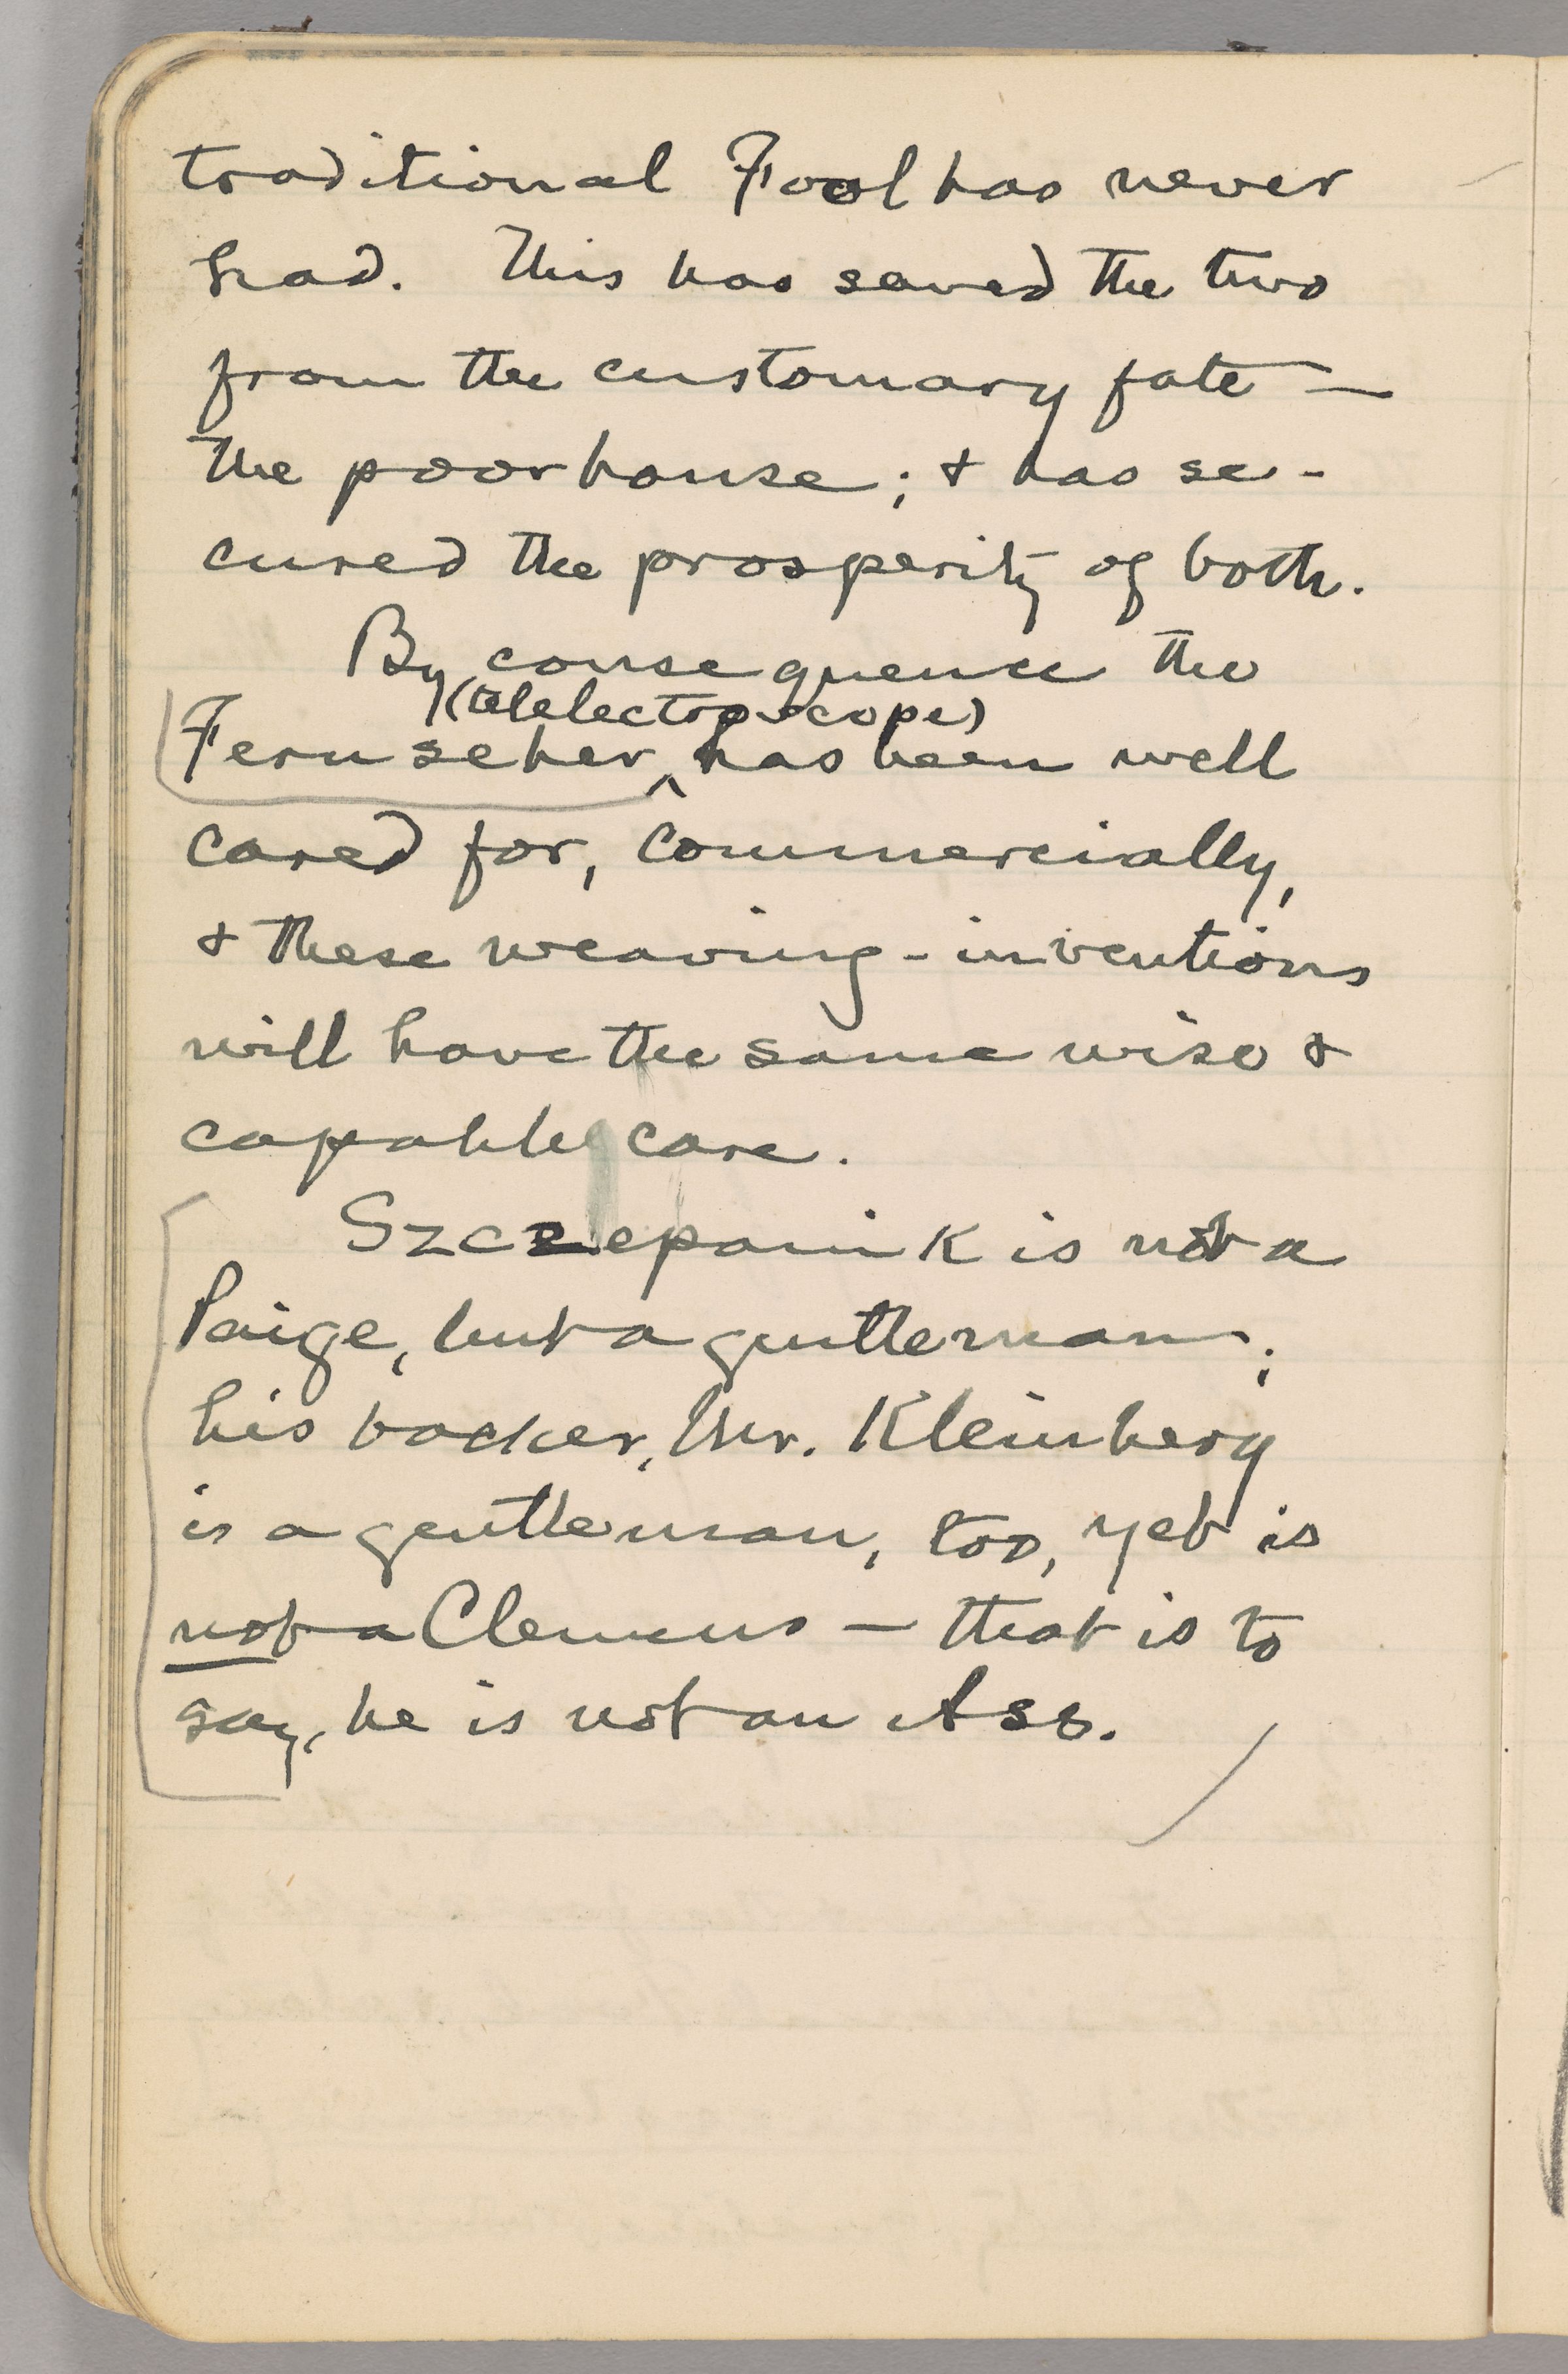 traditional Fool has never
had. This has saved the two
from the customary fate —
the poorhouse; & has se-
cured the prosperity of both.
By consequence the
(telelectroscope)
Fernseher ‸ has been well
cared for, commercially,
& these weaving-inventions
will have the same wise &
capable care.
Szczepanik is not a
Paige, but a gentleman;
his backer, Mr. Kleinberg
is a gentleman, too, yet is
not a Clemens — that is to
say, he is not an Ass.